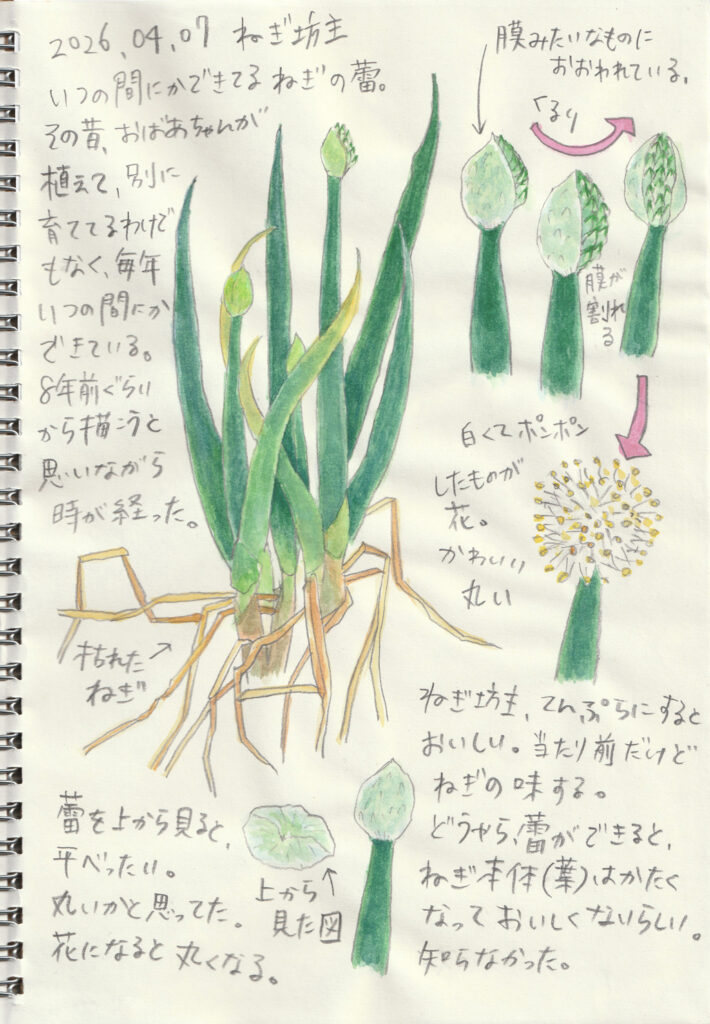 2026.04.07 ねぎ坊主
いつの間にかできてる ねぎの蕾。
その昔、おばあちゃんが
植えて、別に
育ててるわけで
もなく、毎年
いつの間にか
できている。
8年前ぐらい
から描こうと
思いながら
時が経った。
膜みたいなものに
おおわれている。
くるり
膜が
割れる
白くてポンポン
したものが
花。
かわいい
丸い
枯れた
ねぎ
ねぎ坊主、てんぷらにすると
おいしい。当たり前だけど
ねぎの味する。
どうやら、蕾ができると、
ねぎ本体(葉)はかたく
なっておいしくないらしい。
知らなかった。
蕾を上から見ると、
平べったい。
丸いかと思ってた。
花になると丸くなる。
上から
見た図